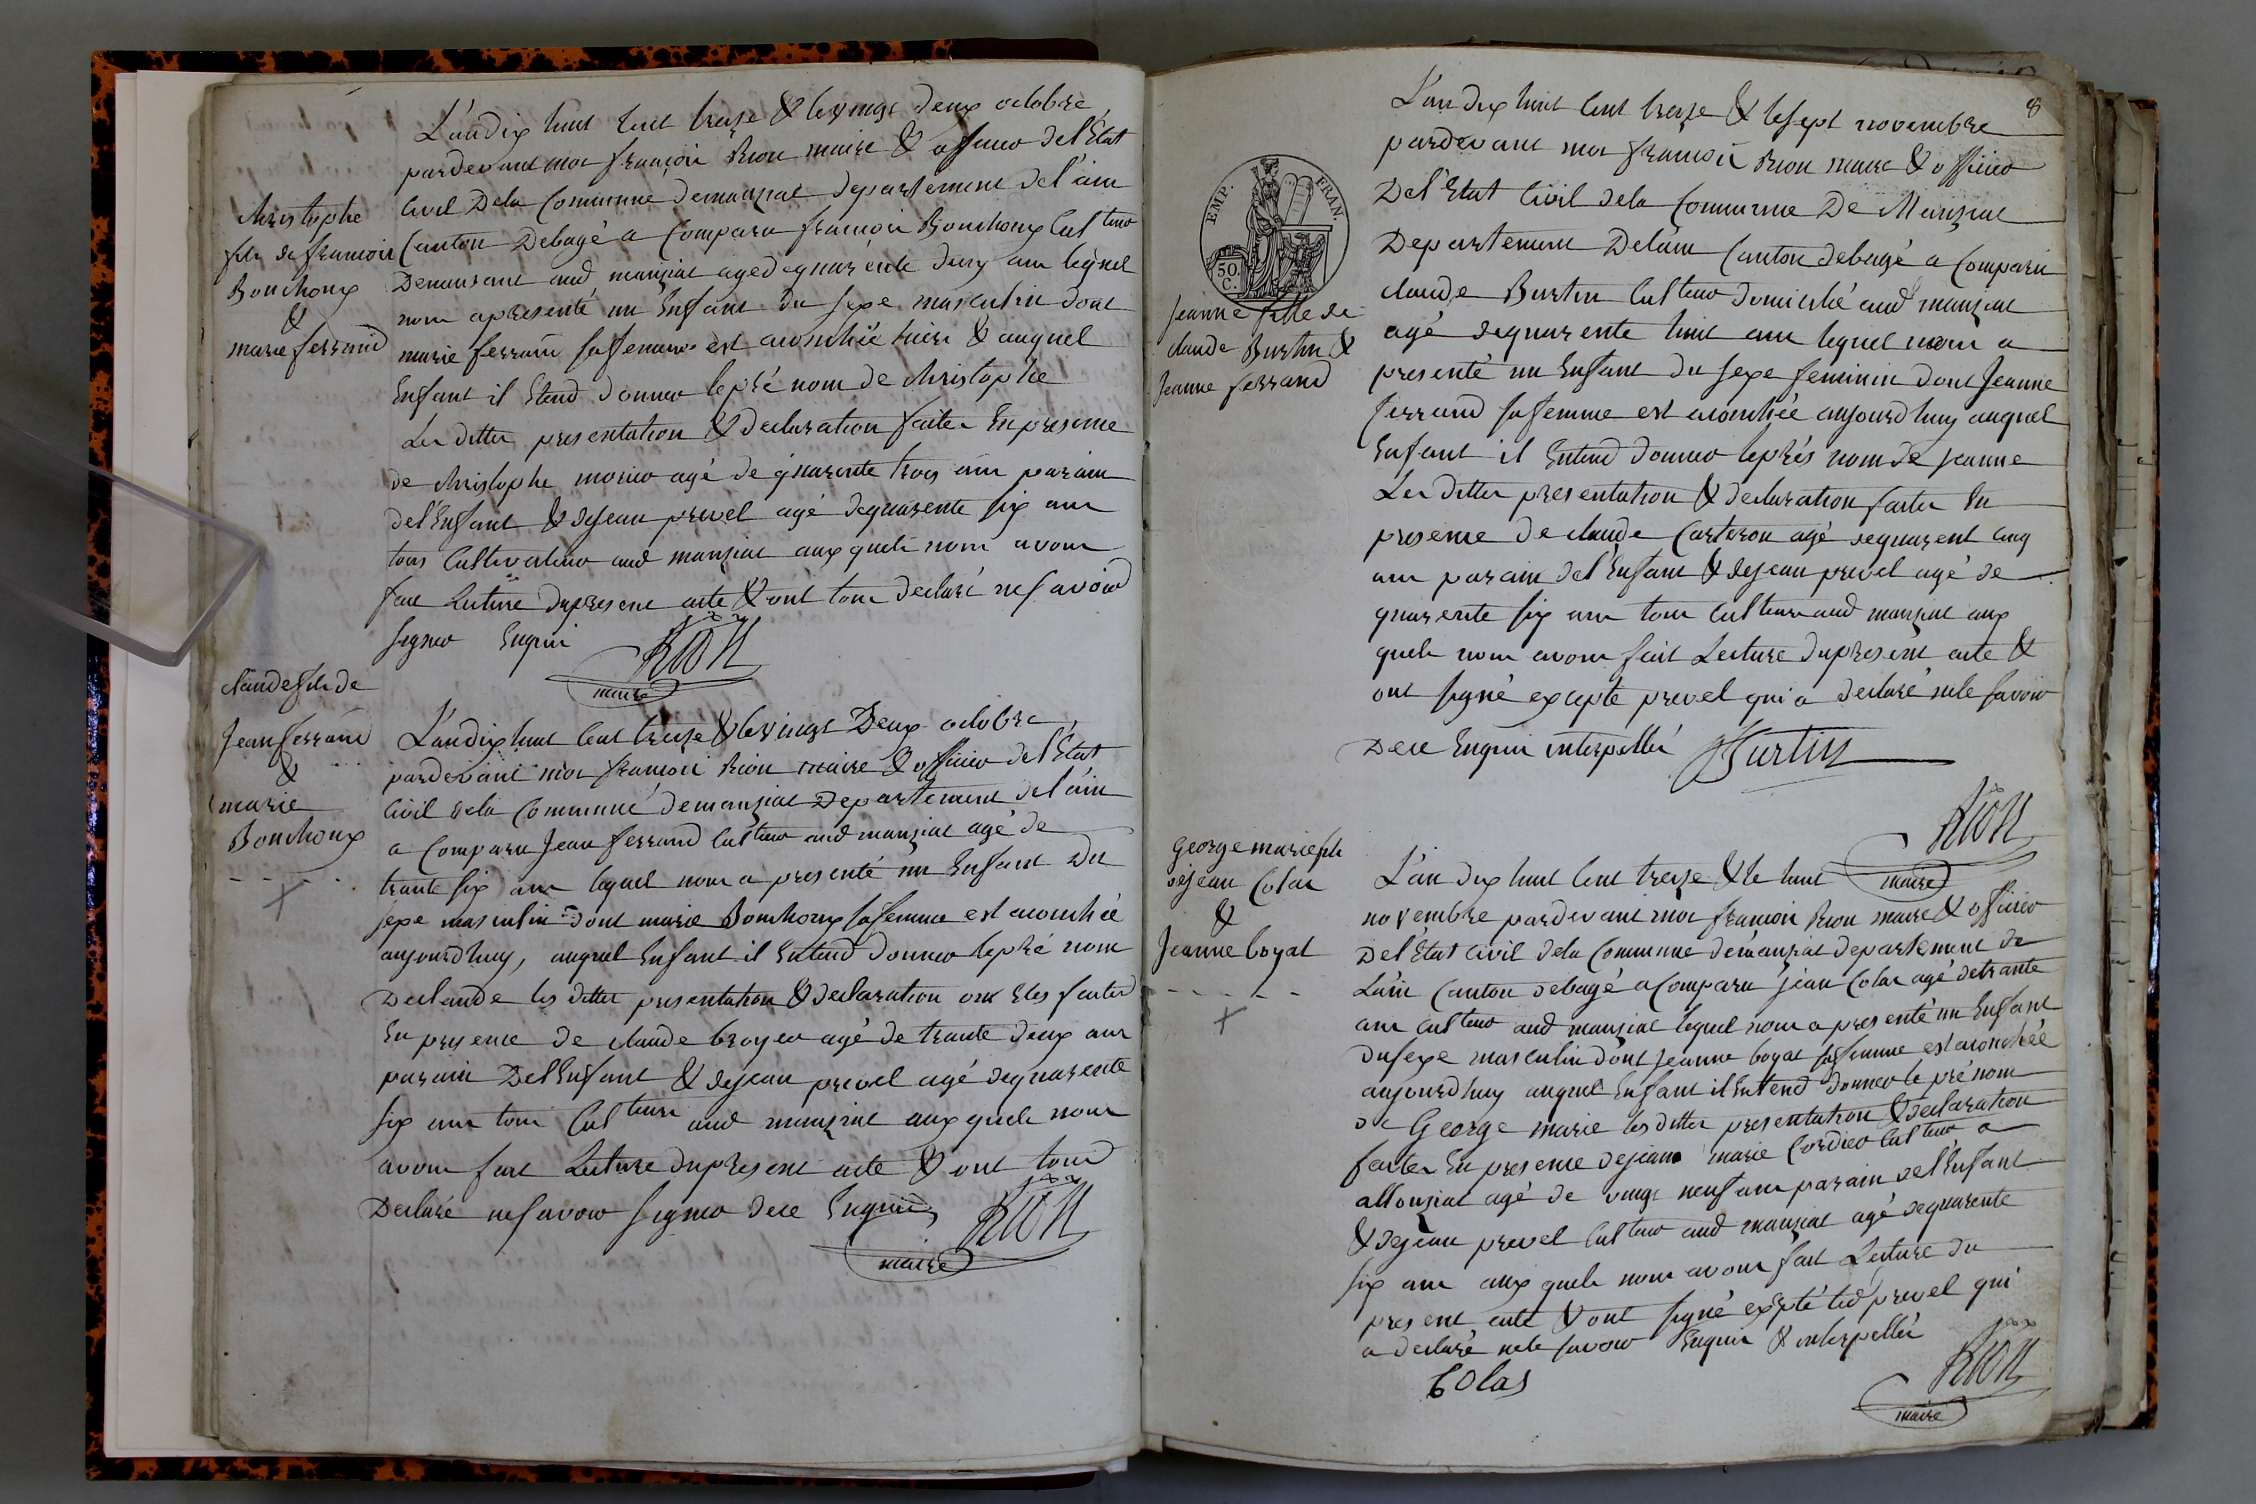 Christophe
fils de francois
Bouchoux
&
marie ferrand
L'an dix huit cent treize & le vingt deux octobre
pardevant moi françois Rion maire & officier del'Etat
Civil Dela Commune demanziat departement del'ain
Canton Debagé a Comparu francois Bouchoux Cult.eur
Demeurant aud manziat agé dequarente deux ans lequel
nous apresenté un Enfant du sexe masculin dont
marie ferrand safemme est acouchée hiere & auquel
Enfant il Etend donner lepré nom de christophe
Les dittes presentation & declaration faites En presence
de christophe monier agé de quarente trois ans parain
del'Enfant & dejean prevel agé dequarente six ans
tous Cultivateur aud manziat aux quels nous avons
fait Lecture dupresent acte & ont tous declaré nesavoir
signer Enquis
Rion
maire
Claude fils de
Jean ferrand
&
marie
Bouchoux
L'an dix huit cent treize & levingt Deux octobre
pardevant moi francois Rion maire & officier del'Etat
Civil dela Commune demanziat Departement del'ain
a Comparu Jean ferrand Cult.eur aud manziat agé de
trante six ans lequel nous a presenté un Enfant Du
sexe masculin dont marie Bouchoux safemme est acouchée
aujourdhuy, auquel Enfant il Entend donner lepré nom
Declaude les dittes presentation & declaration ont Etes faites
En presence de claude broyer agé de trante deux ans
parain Del'Enfant & dejean prevel agé dequarente
six ans tous Cult.eurs aud manziat aux quels nous
avons fait Lecture dupresent acte & ont tous
Declaré nesavoir signer dece Enquis
Rion
maire
8
EMP. FRAN.
50.
C.
Jeanne fille de
claude Burtin &
Jeanne ferrand
L'an dix huit cent treize & lesept novembre
pardevant moi francois Rion maire & officier
Del'Etat Civil dela Commune De Manziat
Departement Delain Canton debagé a Comparu
claude Burtin Cult.eur domicilié aud manziat
agé dequarente huit ans lequel nous a
presenté un Enfant du sexe feminin dont Jeanne
ferrand safemme est acouchée aujourdhuy auquel
Enfant il Entend donner leprés nom de jeanne
Les dittes presentation & declaration faites En
presence de claude Carteron agé dequarent cinq
ans parain del'Enfant & dejean prevel agé de
quarente six ans tous Cult.eurs aud manziat aux
quels nous avons fait Lecture dupresent acte &
ont signé expepte prevel qui a declaré nele savoir
Dece Enquis interpellés Burtin
Rion
maire
George marie fils
dejean Colas
&
Jeanne boyat
L'an dix huit cent treize & le huit
novembre pardevant moi francois Rion maire & officier
Del'Etat Civil dela Commune demanziat departement de
L'ain Canton debagé a Comparu jean Colas agé detrante
ans Cult.eur aud manziat lequel nous a presenté un Enfant
dusexe masculin dont jeanne boyat safemme est acouchée
aujourdhuy auquel Enfant il Entend donner le pré nom
de George marie les dittes presentation & declaration
faites En presence dejean marie Cordier Cult.eur a
allonziat agé de vingt neuf ans parain del'Enfant
& dejean prevel Cult.eur aud manziat agé dequarente
six ans aux quels nous avons fait Lecture du
present acte & ont signé expté led prevel qui
a declaré nele savoir Enquis & interpellés
Colas
Rion
maire